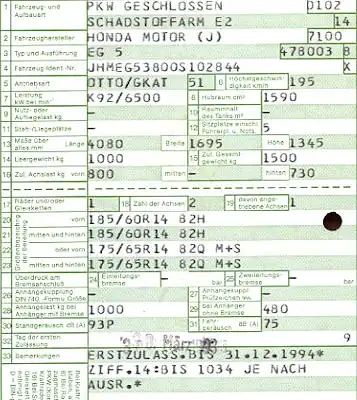 1 Fahrzeug- und Aufbauart PKW GESCHLOSSEN 0102
SCHADSTOFFARM E2 14
2 Fahrzeughersteller HONDA MOTOR (J) 7100
3 Typ und Ausführung EG 5 478003 8
4 Fahrzeug-Ident.-Nr. JHMEG53800S102844 X
5 Antriebsart OTTO/GKAT 51 6 Höchstgeschwindigkeit km/h 195
7 Leistung kW bei min⁻¹ K92/6500 8 Hubraum cm³ 1590
9 Nutz- oder Aufliegelast kg – 10 Rauminhalt des Tanks m³ –
11 Steh-/Liegeplätze – 12 Sitzplätze einschl. Führerpl. u. Nots. 5
13 Maße über alles mm Länge 4080 Breite 1695 Höhe 1345
14 Leergewicht kg 1000 15 Zul. Gesamtgewicht kg 1500
16 Zul. Achslast kg vorn 800 mitten – hinten 730
17 Räder und/oder Gleisketten 1 18 Zahl der Achsen 2 19 davon angetriebene Achsen 1
20 vorn 185/60R14 82H
21 mitten und hinten 185/60R14 82H
22 oder vorn 175/65R14 82Q M+S
23 mitten und hinten 175/65R14 82Q M+S
Überdruck am Bremsanschluß 24 Einleitungsbremse – bar 25 Zweileitungsbremse – bar
26 Anhängekupplung DIN 740.. Form u. Größe – 27 Anhängekuppl. Prüfzeichen –
28 Anhängelast kg bei Anhänger mit Bremse 1000 29 bei Anhänger ohne Bremse 480
30 Standgeräusch dB (A) 93P 31 Fahrgeräusch dB (A) 75
32 Tag der ersten Zulassung 9
33 Bemerkungen ERSTZULASS.BIS 31.12.1994*
ZIFF.14:BIS 1034 JE NACH
AUSR.*